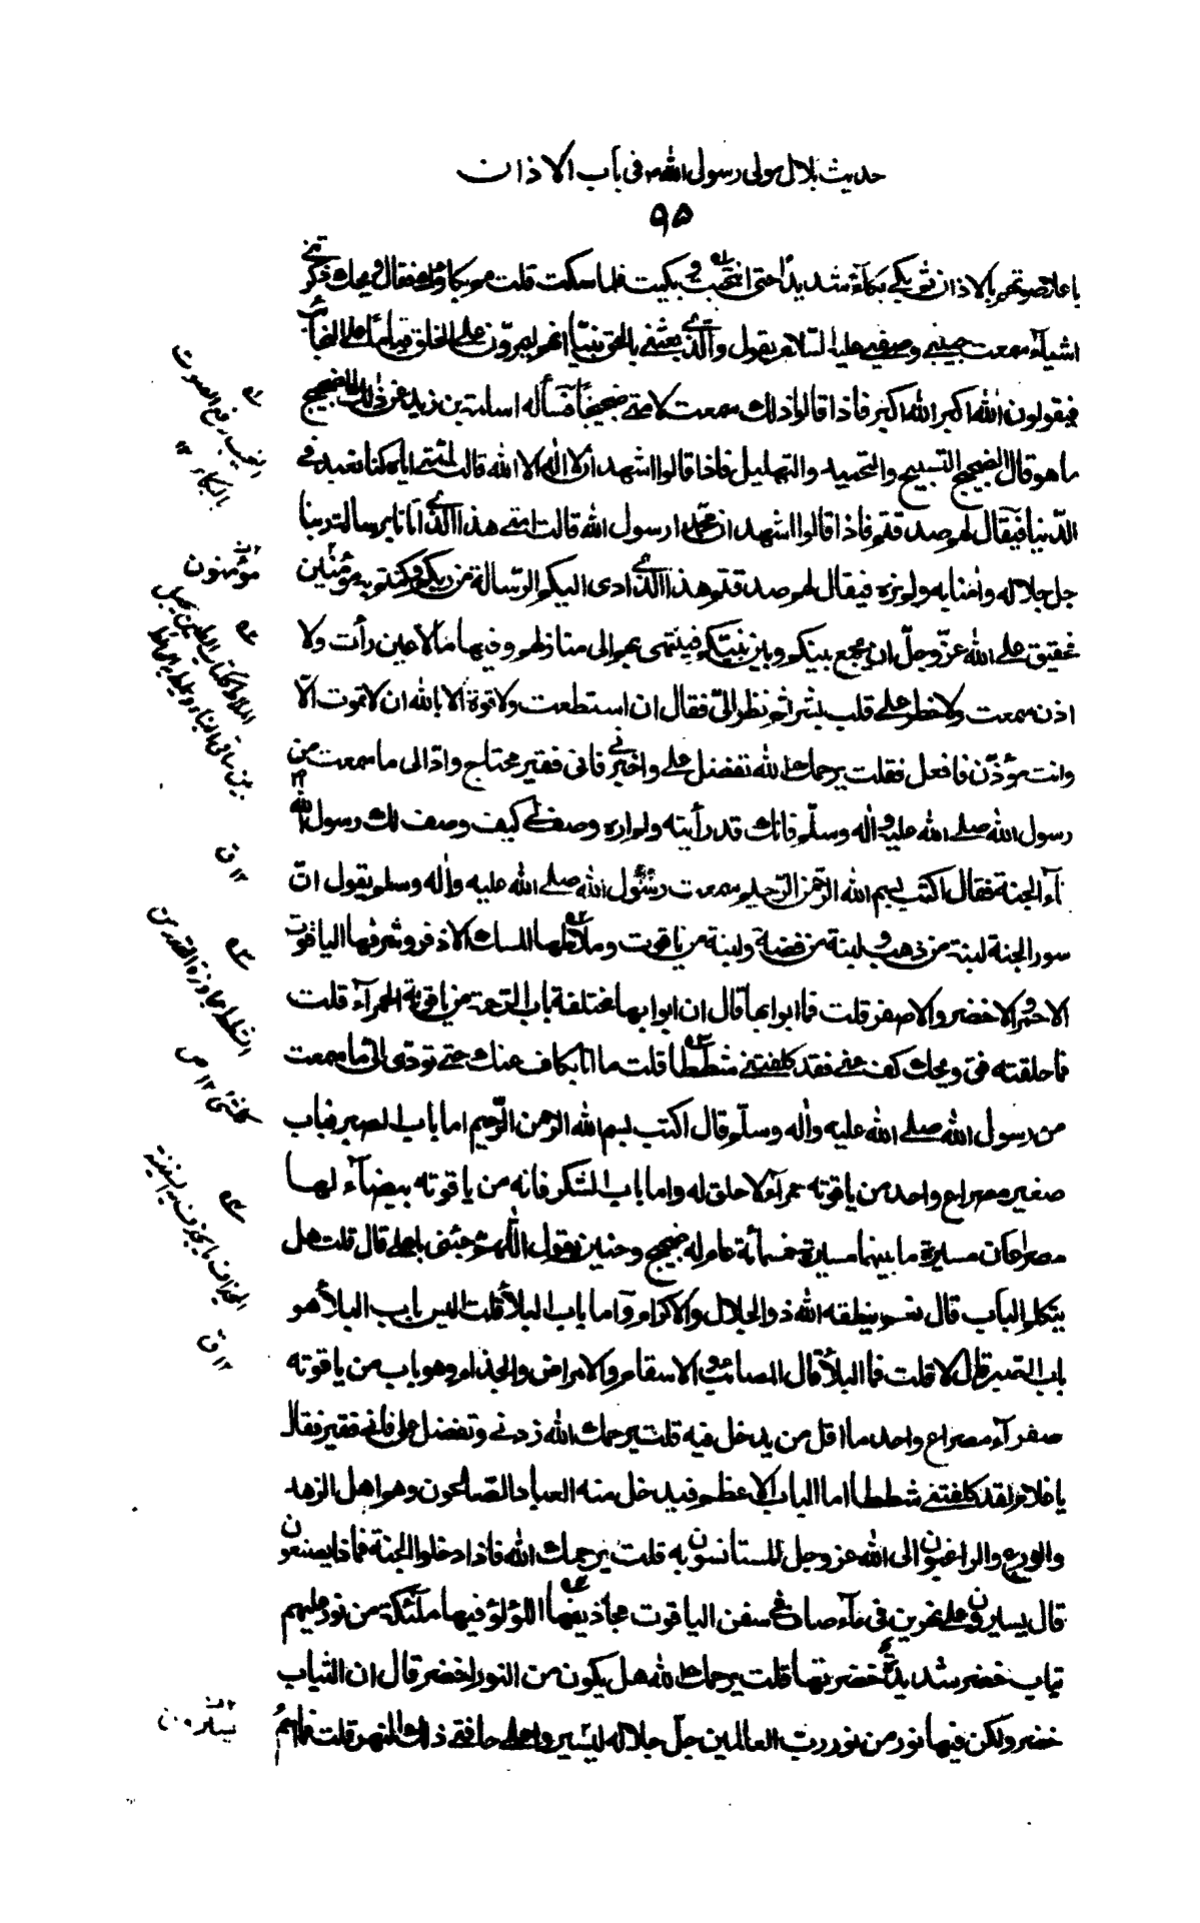 حديث بلال مولى رسول الله ص في باب الاذان
٩٥
باعلا صوتهم بالاذان ثم بكى بكاء شديدا حتى انتحب و بكيت فلما سكت قلت مم بكاؤك فقال ويحك ذكرتني
اشياء سمعت حبيبي وصفيي عليه السلام يقول والذي بعثني بالحق نبيا انهم ليمرون على الخلق قياما على النجائب
فيقولون الله اكبر الله اكبر فاذا قالوا ذلك سمعت لامتي ضجيجا فسأله اسامة بن زيد عن ذلك الضجيج
ما هو قال الضجيج التسبيح والتحميد والتهليل فاذا قالوا اشهد ان لا اله الا الله قالت امتي اياه كنا نعبد في
الدنيا فيقال لهم صدقتم فاذا قالوا اشهد ان محمدا رسول الله قالت امتي هذا الذي اتانا برسالة ربنا
جل جلاله وامنا به ولم نره فيقال لهم صدقتم هذا الذي ادى اليكم الرسالة من ربكم وكنتم به مؤمنين
فحقيق على الله عز وجل ان يجمع بينكم وبين نبيكم فينتهى بهم الى منازلهم وفيها ما لا عين رأت ولا
اذن سمعت ولا خطر على قلب بشر ثم نظر الي فقال ان استطعت ولا قوة الا بالله ان لا تموت الا
وانت مؤذن فافعل فقلت يرحمك الله تفضل علي واخبرني فاني فقير محتاج واد الي ما سمعت من
رسول الله صلى الله عليه واله وسلم فانك قد رأيته ولم اره وصف لي كيف وصف لك رسول الله ص
بناء الجنة فقال اكتب بسم الله الرحمن الرحيم سمعت رسول الله صلى الله عليه واله وسلم يقول ان
سور الجنة لبنة من ذهب ولبنة من فضة ولبنة من ياقوت وملاطها المسك الاذفر وشرفها الياقوت
الاحمر والاخضر والاصفر قلت فما ابوابها قال ان ابوابها مختلفة باب الرحمة من ياقوتة الحمراء قلت
فما حلقته فقال ويحك كف عني فقد كلفتني شططا قلت ما انا بكاف عنك حتى تودي الي ما سمعت
من رسول الله صلى الله عليه واله وسلم قال اكتب بسم الله الرحمن الرحيم اما باب الصبر فباب
صغير مصراع واحد من ياقوته حمراء لا حلق له واما باب الشكر فانه من ياقوته بيضاء لها
مصراعان مسيرة ما بينهما مسيرة خمسمائة عام له ضجيج وحنين يقول اللهم جئني باهلي قال قلت هل
يتكلم الباب قال نعم ينطقه الله ذو الجلال والاكرام واما باب البلاء قلت اليس باب البلاء هو
باب الصبر قال لا قلت فما البلاء قال المصائب والاسقام والامراض والجذام وهو باب من ياقوته
صفراء مصراع واحد ما اقل من يدخل فيه قلت يرحمك الله زدني وتفضل علي فاني فقير فقال
يا غلام لقد كلفتني شططا اما الباب الاعظم فيدخل منه العباد الصالحون وهم اهل الزهد
والورع والراغبون الى الله عز وجل المستانسون به قلت يرحمك الله فاذا دخلوا الجنة فماذا يصنعون
قال يسيرون على نهرين في ماء صاف في سفن الياقوت مجاذيفها اللؤلؤ فيها ملئكة من نور عليهم
ثياب خضر شديدة خضرتها قلت يرحمك الله هل يكون من النور اخضر قال ان الثياب
خضر ولكن فيها نور من نور رب العالمين جل جلاله ليسيروا على حافتي ذلك النهر قلت فما اسم
النحيب رفع الصوت
بالبكاء ١٢
مؤمنون
١٢ ق
١٢ ص
١٢ ق
يسيرون